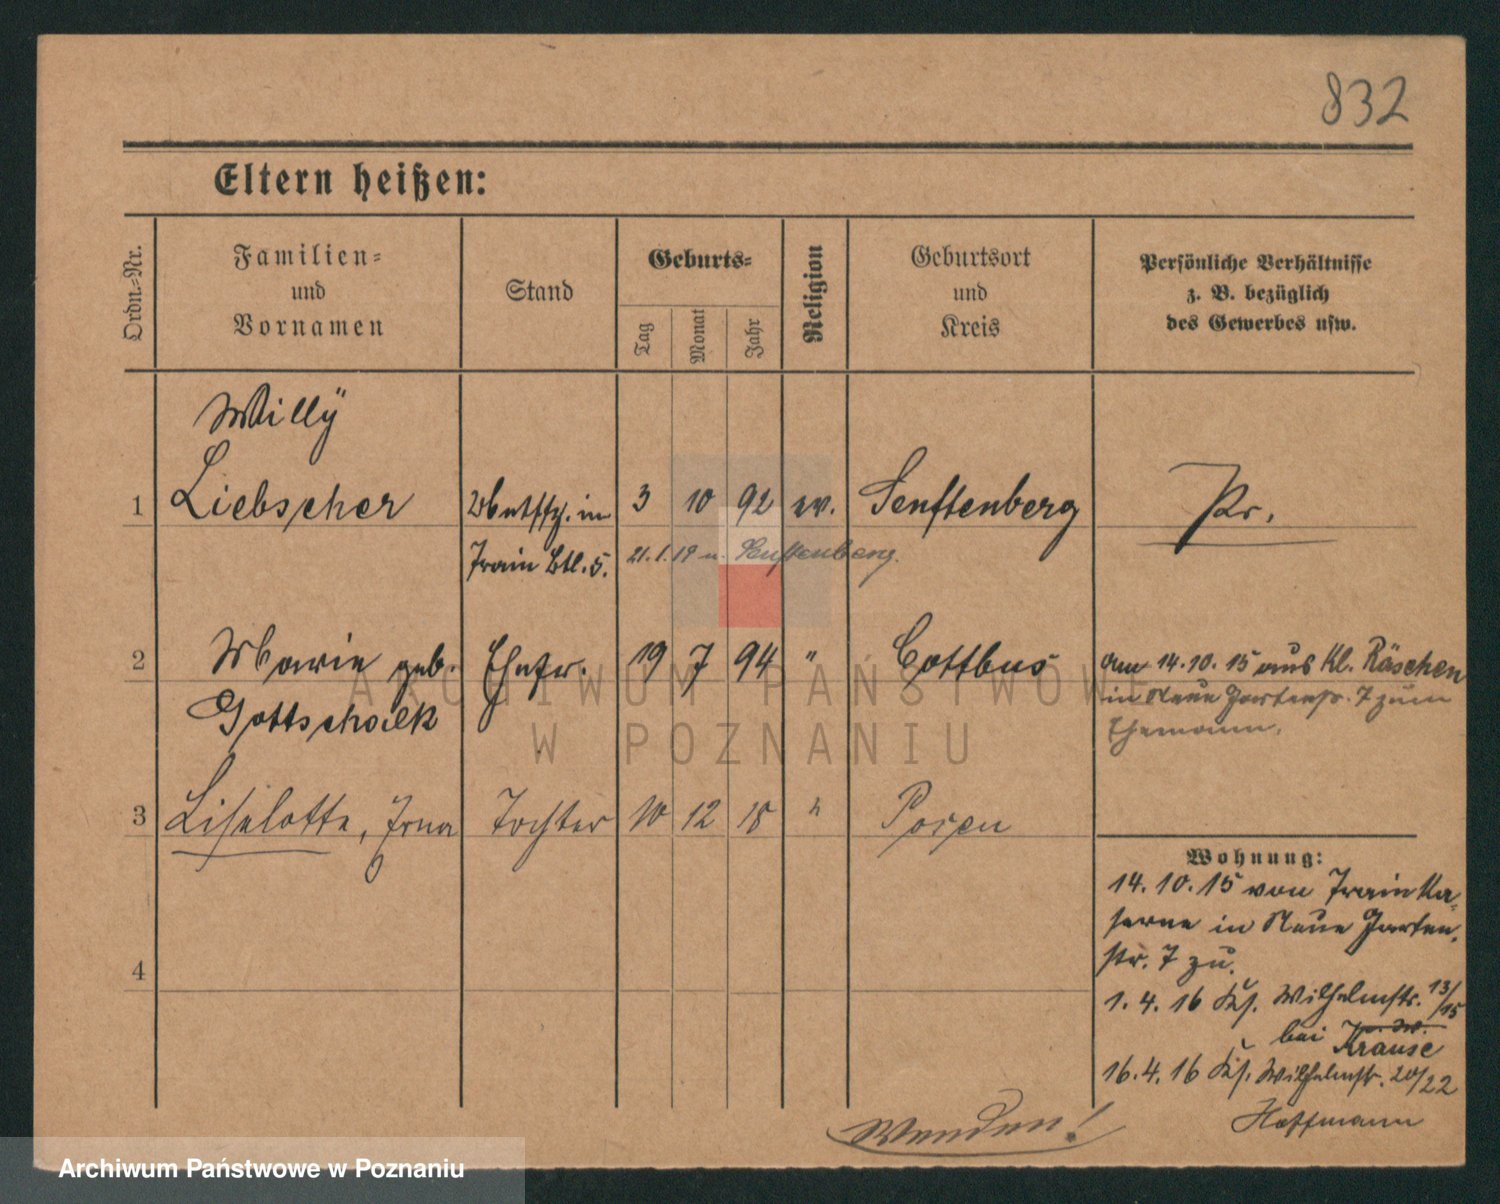 832
Eltern heißen:
Ordn.-Nr.
Familien-
und
Vornamen
Stand
Geburts-
Tag
Monat
Jahr
Religion
Geburtsort
und
Kreis
Persönliche Verhältnisse
z. B. bezüglich
des Gewerbes usw.
Willÿ
1 Liebscher in 3 10 92 ev. Senftenberg Pr.
Train Btl. 5. 21.1.19 n. Senftenberg.
2 Marie geb. Ehefr. 19 7 94 " Cottbus am 14.10.15 aus Kl. Räschen
Gottschalk
in Neue Gartenstr. 7 zum
Ehemann.
3 Liselotte, Irna Tochter 10 12 18 " Posen
Wohnung:
14.10.15 von Train Ka-
serne in Neue Garten-
str. 7 zu.
4
1.4.16 Wilhelmstr. 13/15
bei Krause
16.4.16 Wilhelmstr. 20/22
Hoffmann
Wenden!
ARCHIWUM PAŃSTWOWE
W POZNANIU
Archiwum Państwowe w Poznaniu